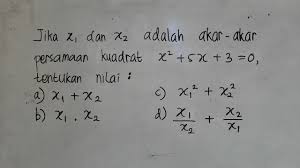 Jika x₁ dan x₂ adalah akar-akar
persamaan kuadrat x² + 5x + 3 = 0,
tentukan nilai :
a) x₁ + x₂ c) x₁² + x₂²
b) x₁ . x₂ d) x₁/x₂ + x₂/x₁